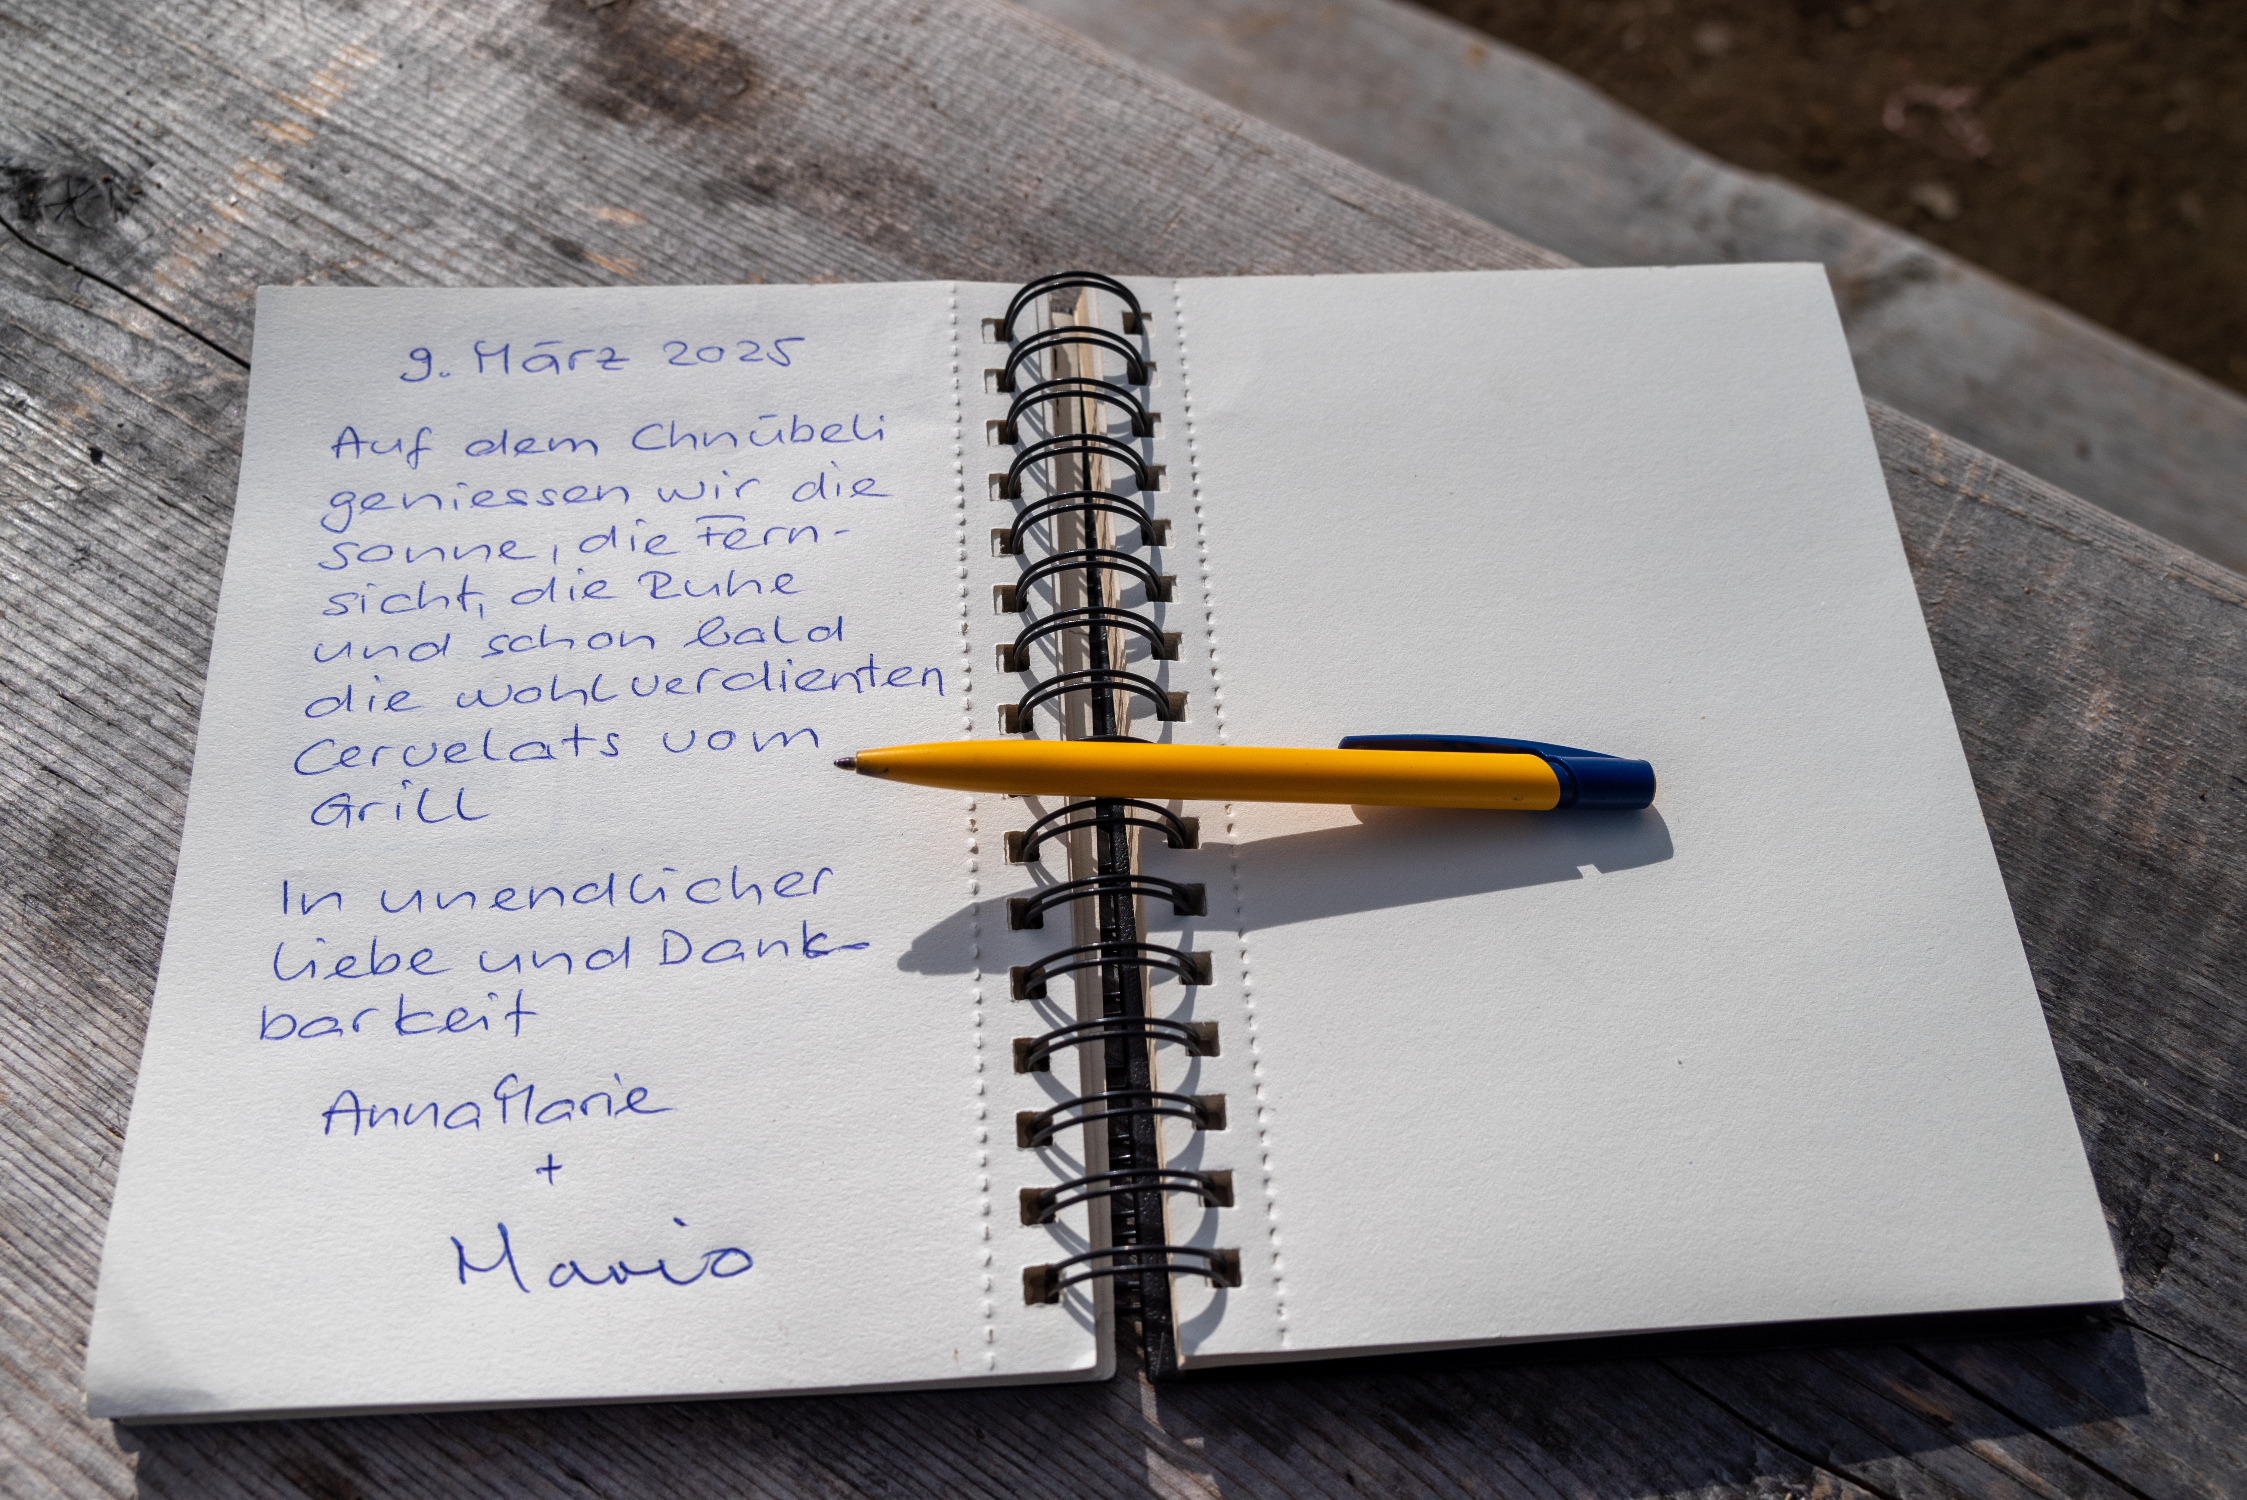 9. März 2025
Auf dem Chnübeli
geniessen wir die
Sonne, die Fern-
sicht, die Ruhe
und schon bald
die wohlverdienten
Cervelats vom
Grill
In unendlicher
Liebe und Dank-
barkeit
AnnaMarie
+
Mario